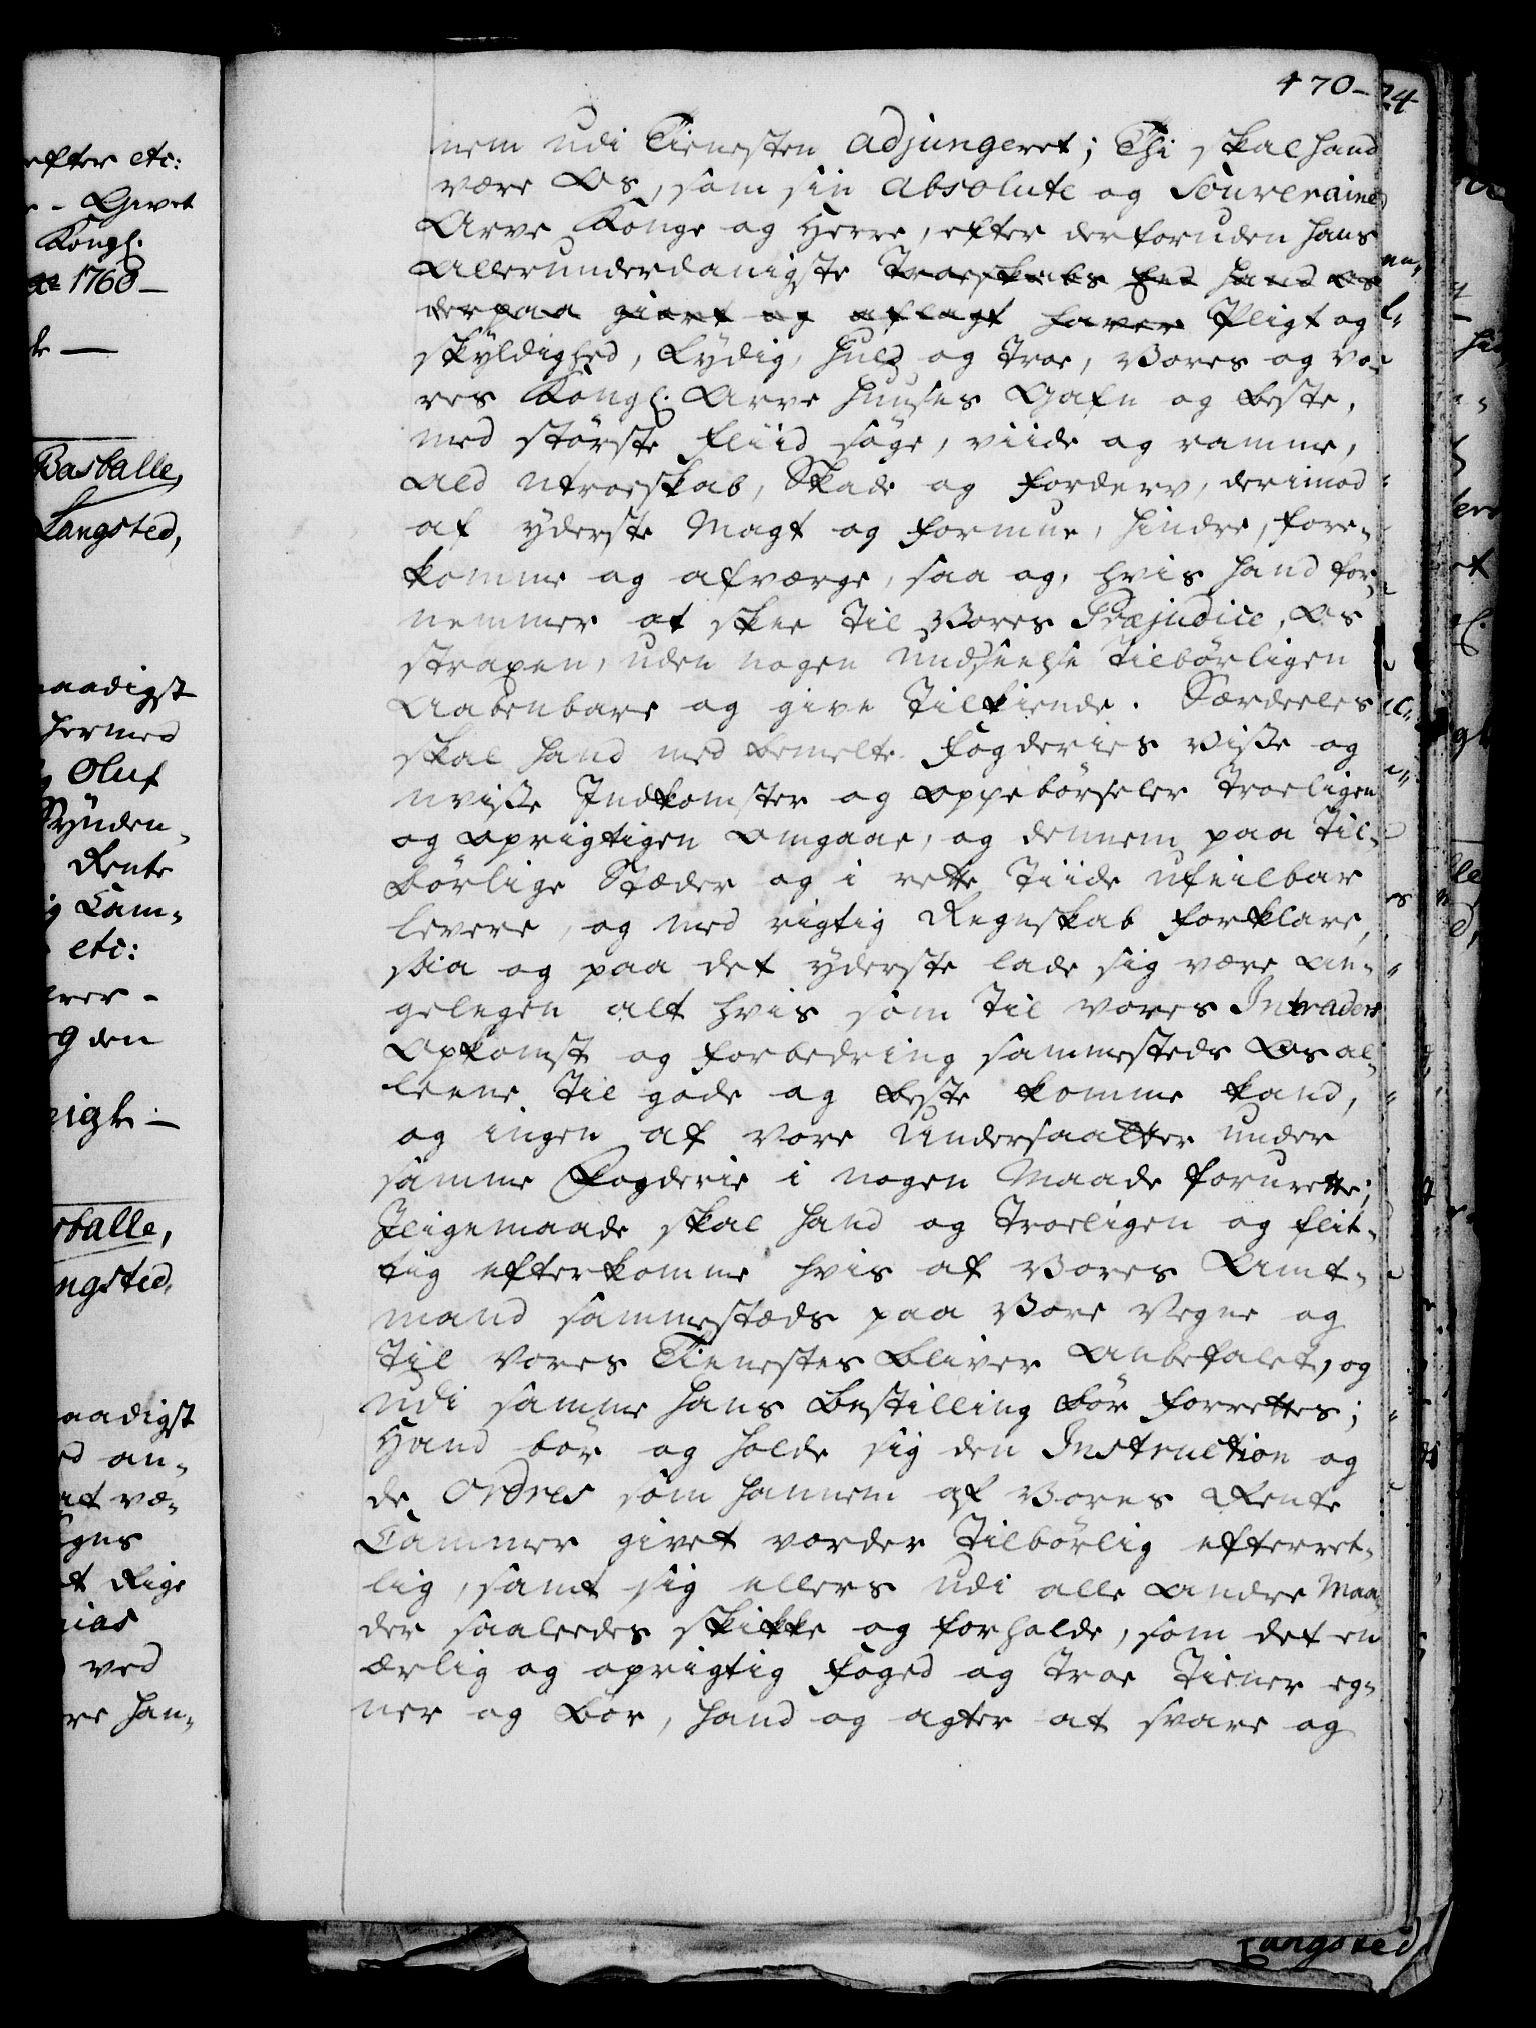 470-
nem udi Tienesten adjungeret; Thi skal hand
være Os, som sin absolute og Souveraine
Arve Konge og Herre, efter derforuden hans
Allerunderdanigste Troeskabs Eed hand os
derpaa giort og aflagt haver Pligt og
skyldighed, Lydig, huld og troe, Vores og vo-
res Kongl. Arve Huuses Gafn og beste,
med störste fliid söge, viide og ramme,
Ald utroeskab, Skade og forderv, derimod
af yderste Magt og formue, hindre, fore-
komme og afværge, saa og, hvis hand for-
nemmer at skee til Vores Præjudice, Os
straxen, uden nogen undseelse tilbörligen
Aabenbare og give tilkiende. Særdeeles
skal hand med bemelte Fogderies visse og
uvisse Indkomster og oppebörseler troeligen
og oprigtigen omgaae, og dennem paa til-
börlige Stæder og i rette tiide ufeilbar
levere, og med rigtig Regnskab forklare,
saa og paa det yderste lade sig være an-
gelegen alt hvis som til vores Intraders
Opkomst og forbedring sammesteds Os al-
leene til gode og beste komme kand,
og ingen af vore Undersaatter under
samme Fogderie i nogen Maade forurette;
Iligemaade skal hand og troeligen og flit-
tig efterkomme hvis af Vores Amt-
mand sammestæds paa Vore Vegne og
til vores Tienestes bliver anbefalet, og
udi samme hans bestilling bör forrettes;
Hand bör og holde sig den Instruction og
de Ordres som hannem af Vores Rente
Cammer givet vorder tilbörlig efterret-
lig, samt sig ellers udi alle andre Maa-
der saaledes skikke og forholde, som det en
ærlig og oprigtig foged og troe tiener eg-
ner og bör, hand og agter at svare og
efter etc:
- Givet
Kongl.
1760-
Basballe,
Langsted,
aadigst
hermed
Oluf
Synden-
Rente
Cam-
etc:
den
balle,
ngsted,
aadigst
an-
at væ-
Rige
ved
han-
24
Langsted